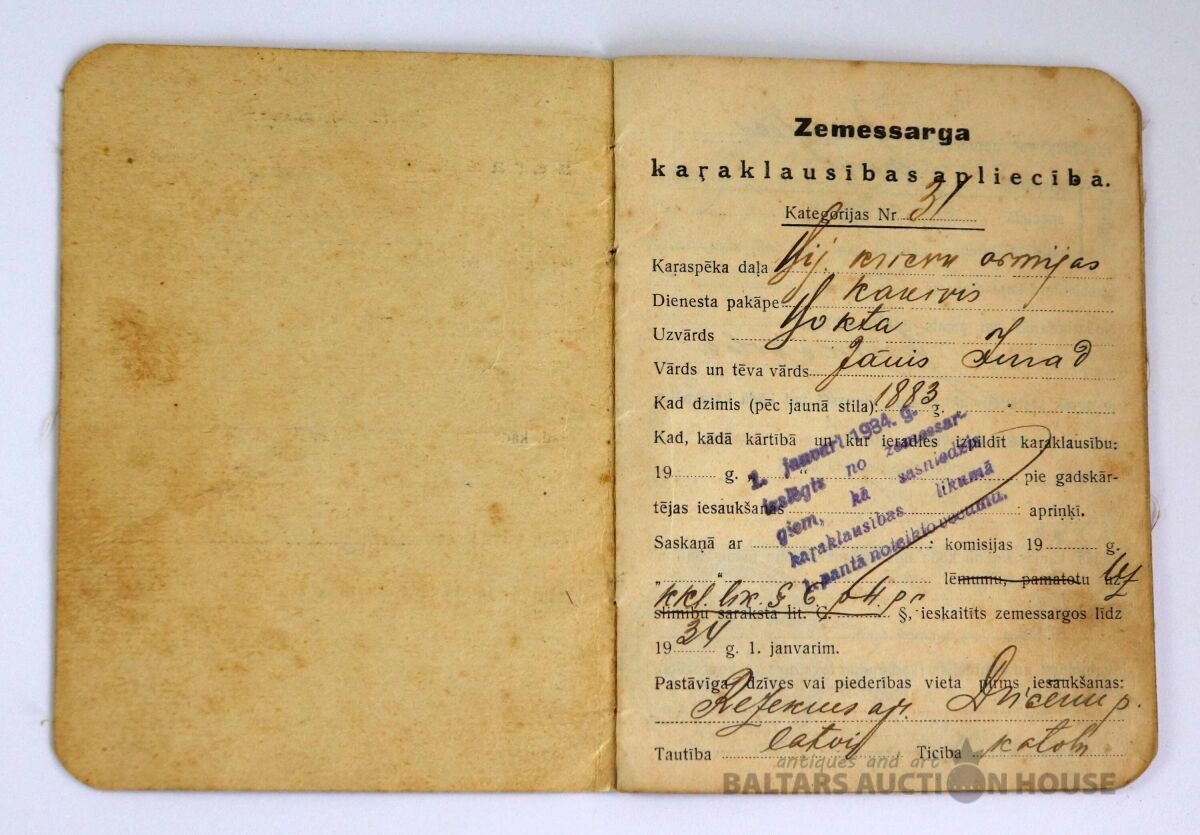 Zemessarga
kaŗaklausības apliecība.
Kategorijas Nr 31
Kaŗaspēka daļa bij. krievu armijas
Dienesta pakāpe kareivis
Uzvārds Vokta
Vārds un tēva vārds Jānis
Kad dzimis (pēc jaunā stila): 1883 g.
Kad, kādā kārtībā un kur ieradies izpildīt karaklausību:
19 g. „ “ pie gadskār-
tējas iesaukšanas apriņķī.
1. janvarī 1934. g.
izslēgts no zemessar-
giem, kā sasniedzis
kaŗaklausības likumā
1. pantā noteikto vecumu.
Saskaņā ar komisijas 19 g.
„ “ lēmumu, pamatotu uz
kkl. lik. § 6
slimību saraksta lit. C. §, ieskaitīts zemessargos līdz
1934 g. 1. janvarim.
Pastāvīga dzīves vai piederības vieta pirms iesaukšanas:
Rēzeknes apr. Dricēnu p.
Tautība latvis Ticība katoļu
antiques and art
BALTARS AUCTION HOUSE